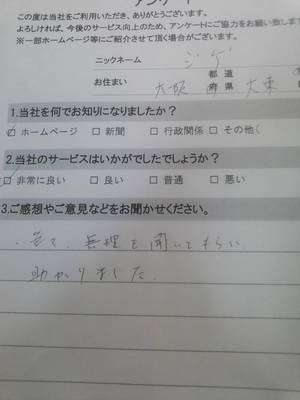 アンケート
この度は当社をご利用いただき、ありがとうございます。
よろしければ、今後のサービス向上のため、アンケートにご協力をお願い致します
※一部ホームページ等にご紹介させて頂く場合がございます。
ニックネーム ジゲ
お住まい 大阪 都道府県 大東
1.当社を何でお知りになりましたか？
☑ ホームページ □ 新聞 □ 行政関係 □ その他(
2.当社のサービスはいかがでしたでしょうか？
☑ 非常に良い □ 良い □ 普通 □ 悪い
3.ご感想やご意見などをお聞かせください。
・色々、無理を聞いてもらい
助かりました。